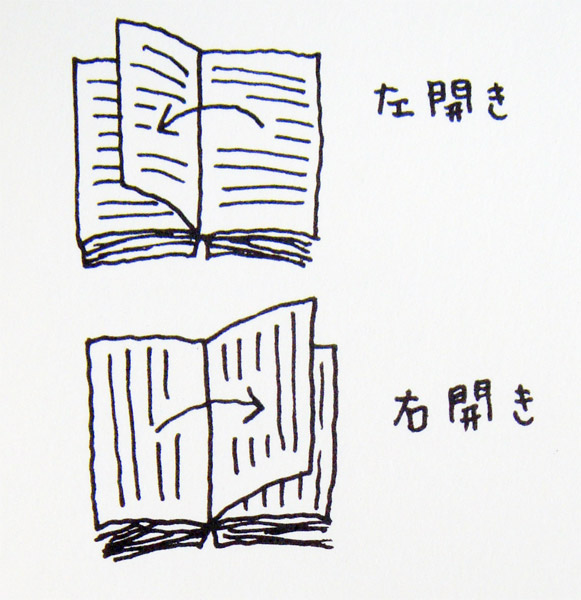 左開き
右開き